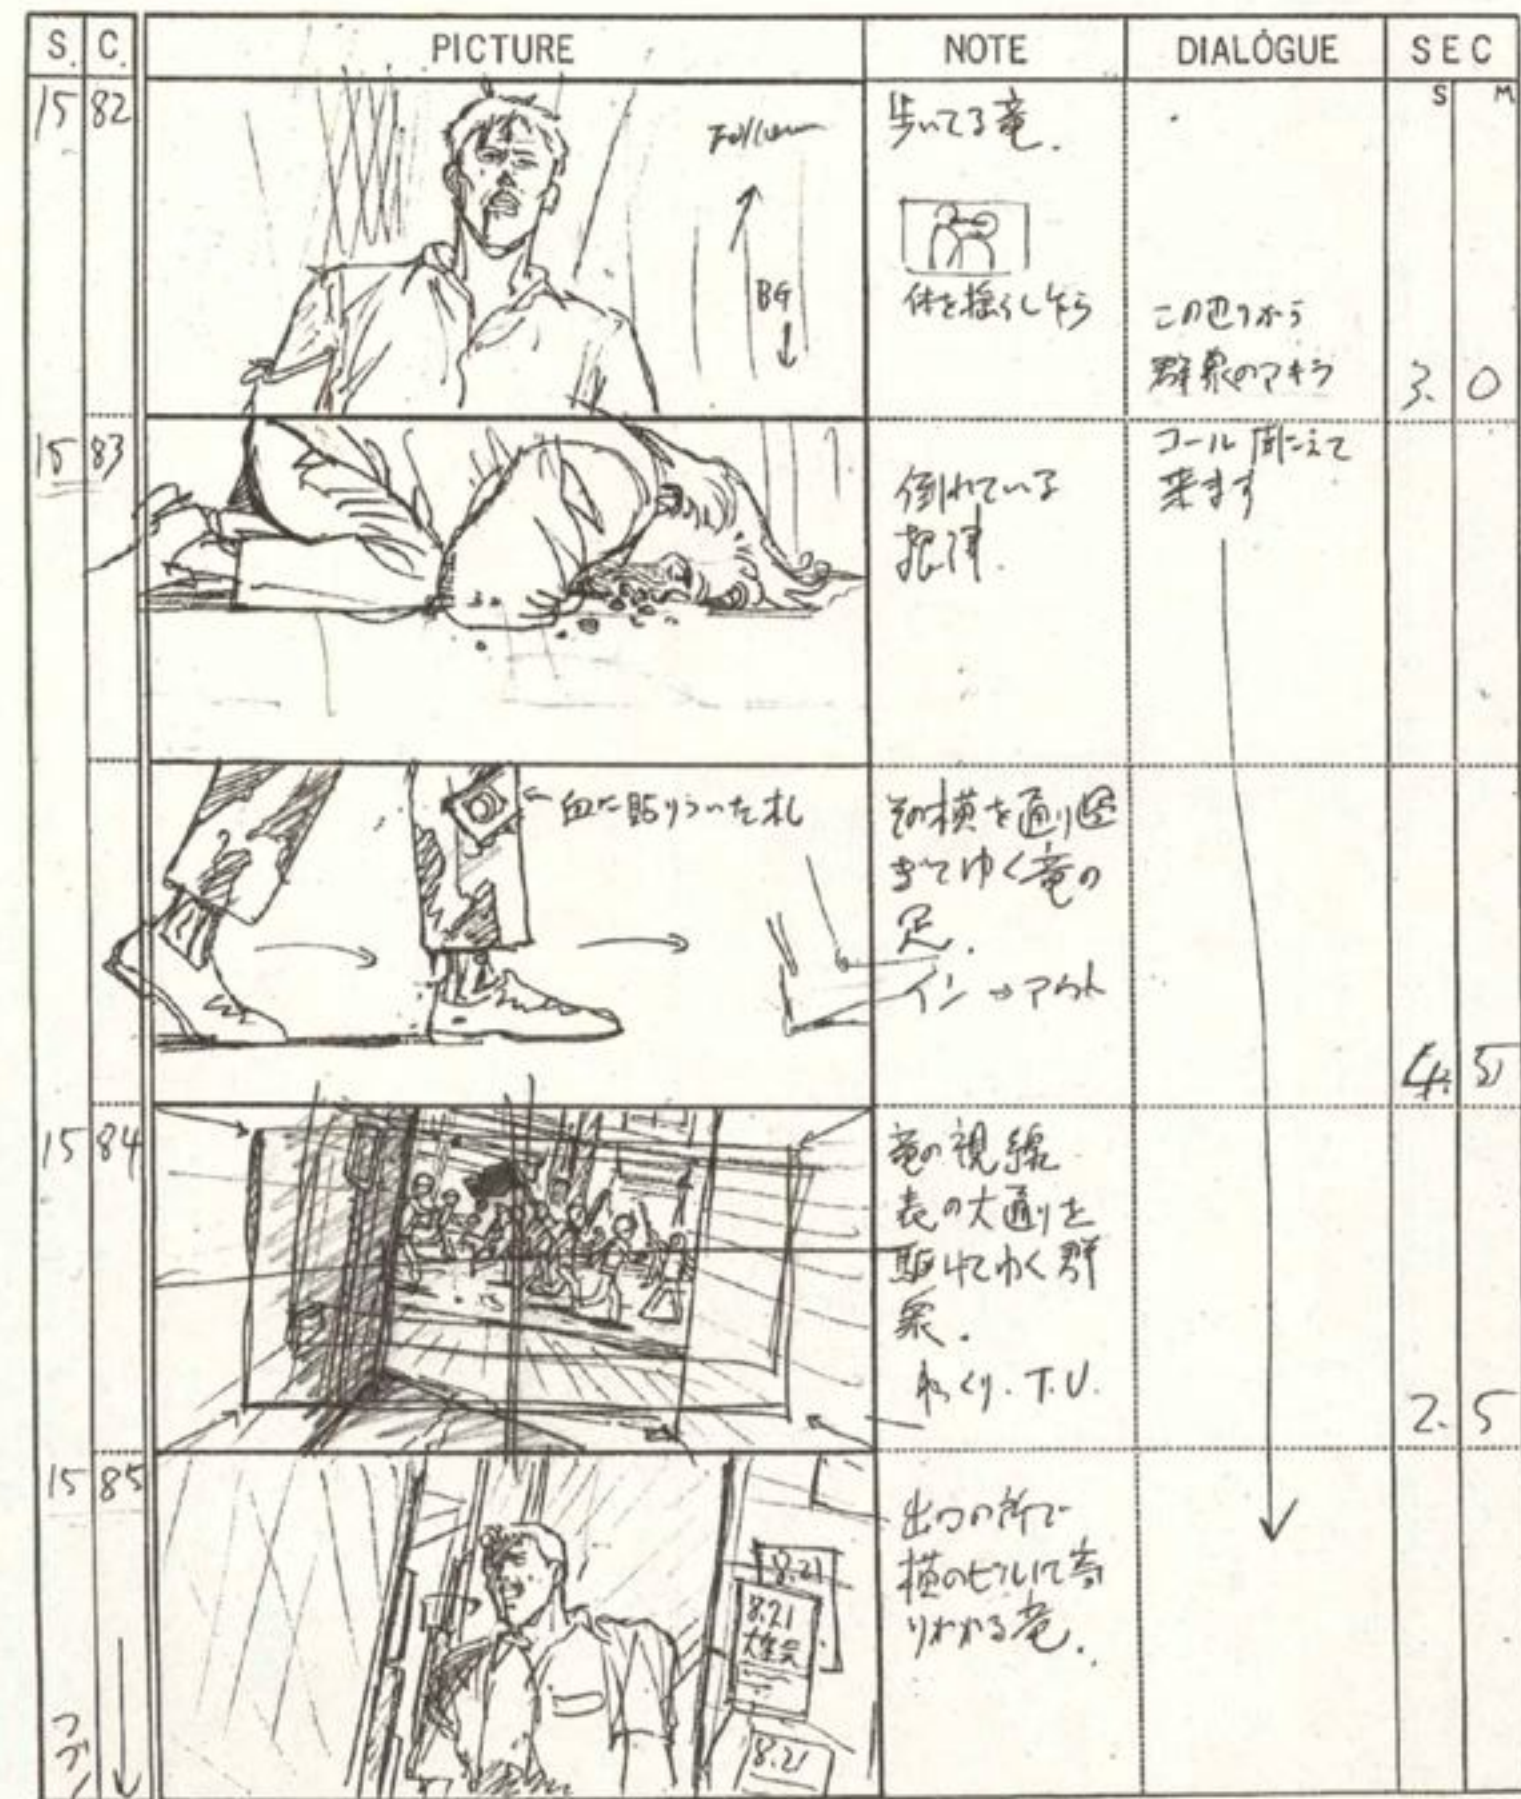 S. C. PICTURE NOTE DIALOGUE SEC
S M
15 82
Follow
BG
歩いてる竜.
体を揺らし乍ら
この辺りから
群衆のアキラ
3. 0
15 83
倒れている
根津.
コール聞こえて
来ます
←血に貼りついた札
その横を通り過
ぎてゆく竜の
足.
イン→アウト
4. 5
15 84
竜の視線
表の大通りを
駆けてゆく群
衆.
ゆっくり.T.U.
2. 5
15 85
8.21
8.21
大集会
8.21
出口の所で
横のビルに寄
りかかる竜.